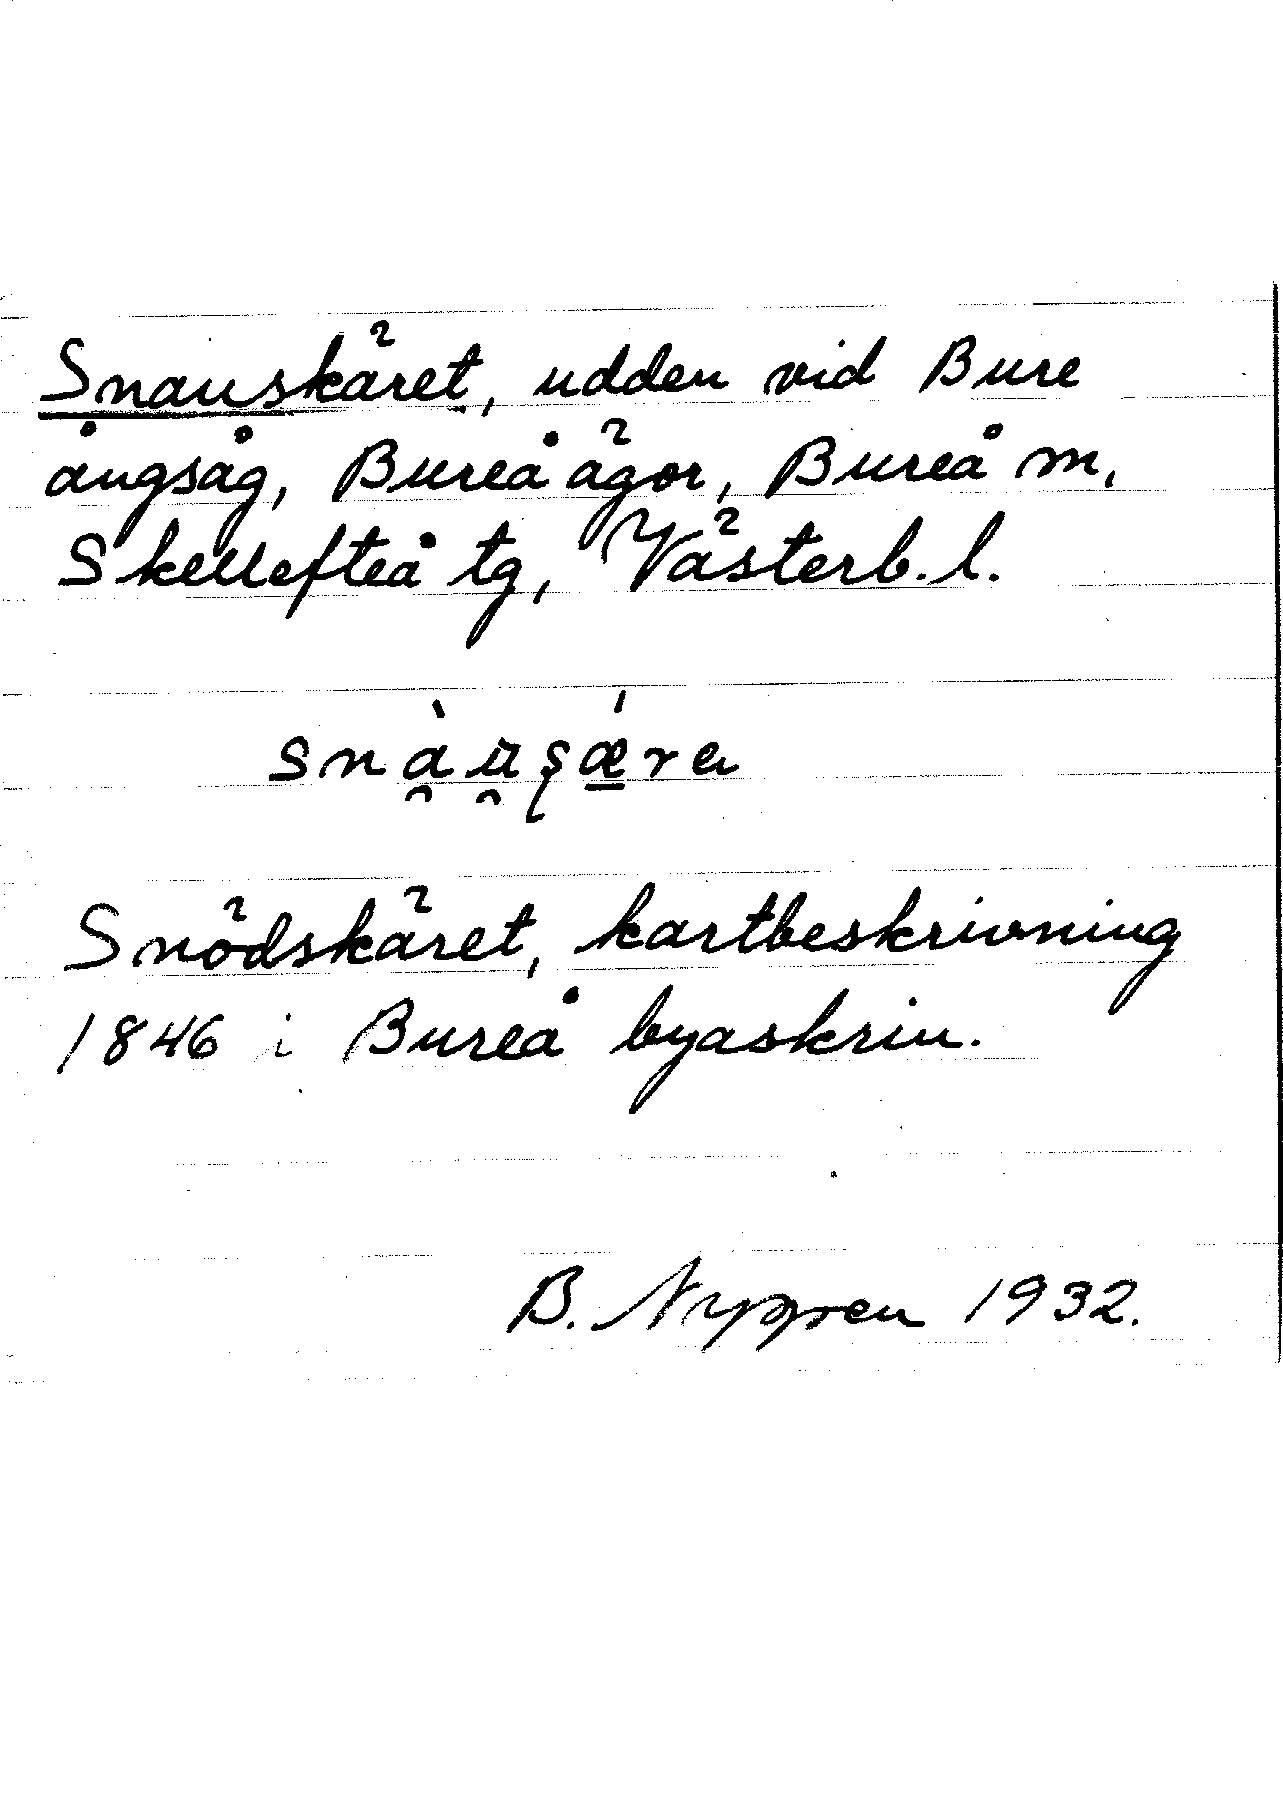 Snauskäret, udden vid Bure
ångsåg, Bureå ägor, Bureå m,
Skellefteå tg, Västerb. l.
Snödskäret, kartbeskrivning
1846 i Bureå byaskrin.
B. Nygren 1932.